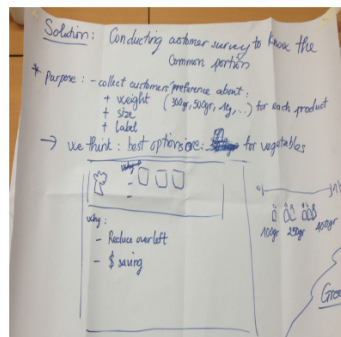 Solution: Conducting customer survey to know the
Common portion
* Purpose: - collect customers' preference about:
+ weight (300gr, 500gr, 1kg, ..) for each product
+ size
+ label
→ we think: best options are: for vegetables
why:
- Reduce overleft
- $ saving
100gr 250gr 400gr